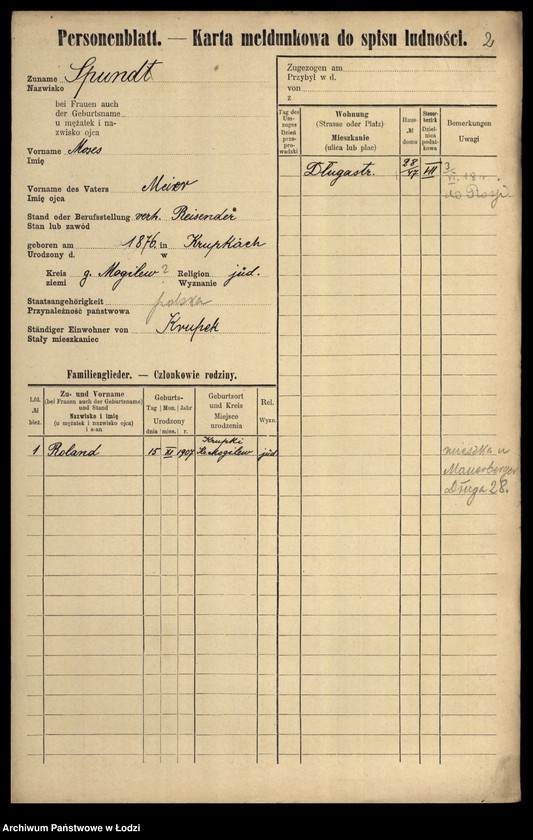 Personenblatt. — Karta meldunkowa do spisu ludności. 2
Zuname
Nazwisko
Spundt
bei Frauen auch
der Geburtsname
u mężatek i na-
zwisko ojca
Vorname Moses
Imię
Vorname des Vaters Meier
Imię ojca
Stand oder Berufsstellung verh. Reisender
Stan lub zawód
geboren am 1876. in Krupkach
Urodzony d. w
Kreis g. Mogilew? Religion jüd.
ziemi Wyznanie
Staatsangehörigkeit polska
Przynależność państwowa
Ständiger Einwohner von Krupek
Stały mieszkaniec
Familienglieder. — Członkowie rodziny.
Lfd.
№
bież.
Zu- und Vorname
(bei Frauen auch der Geburtsname)
und Stand
Nazwisko i imię
(u mężatek i nazwisko ojca)
i stan
Geburts-
Tag | Mon. | Jahr
Urodzony
dnia | mies. | r.
Geburtsort
und Kreis
Miejsce
urodzenia
Rel.
Wyzn.
1 Roland 15 XI 1907 Krupki Mogilew jüd
Zugezogen am
Przybył w d.
von
z
Tag des
Um-
zuges
Dzień
prze-
pro-
wadzki
Wohnung
(Strasse oder Platz)
Mieszkanie
(ulica lub plac)
Haus-
№
domu
Steuer-
bezirk
Dziel-
nica
podat-
kowa
Bemerkungen
Uwagi
Długastr. 28/47 VII
do Rosji
mieszka u
Mauerberger
Długa 28.
Archiwum Państwowe w Łodzi